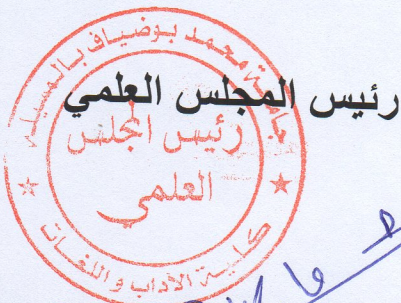 رئيس المجلس العلمي
جامعة محمد بوضياف بالمسيلة
رئيس المجلس
العلمي
كلية الآداب واللغات